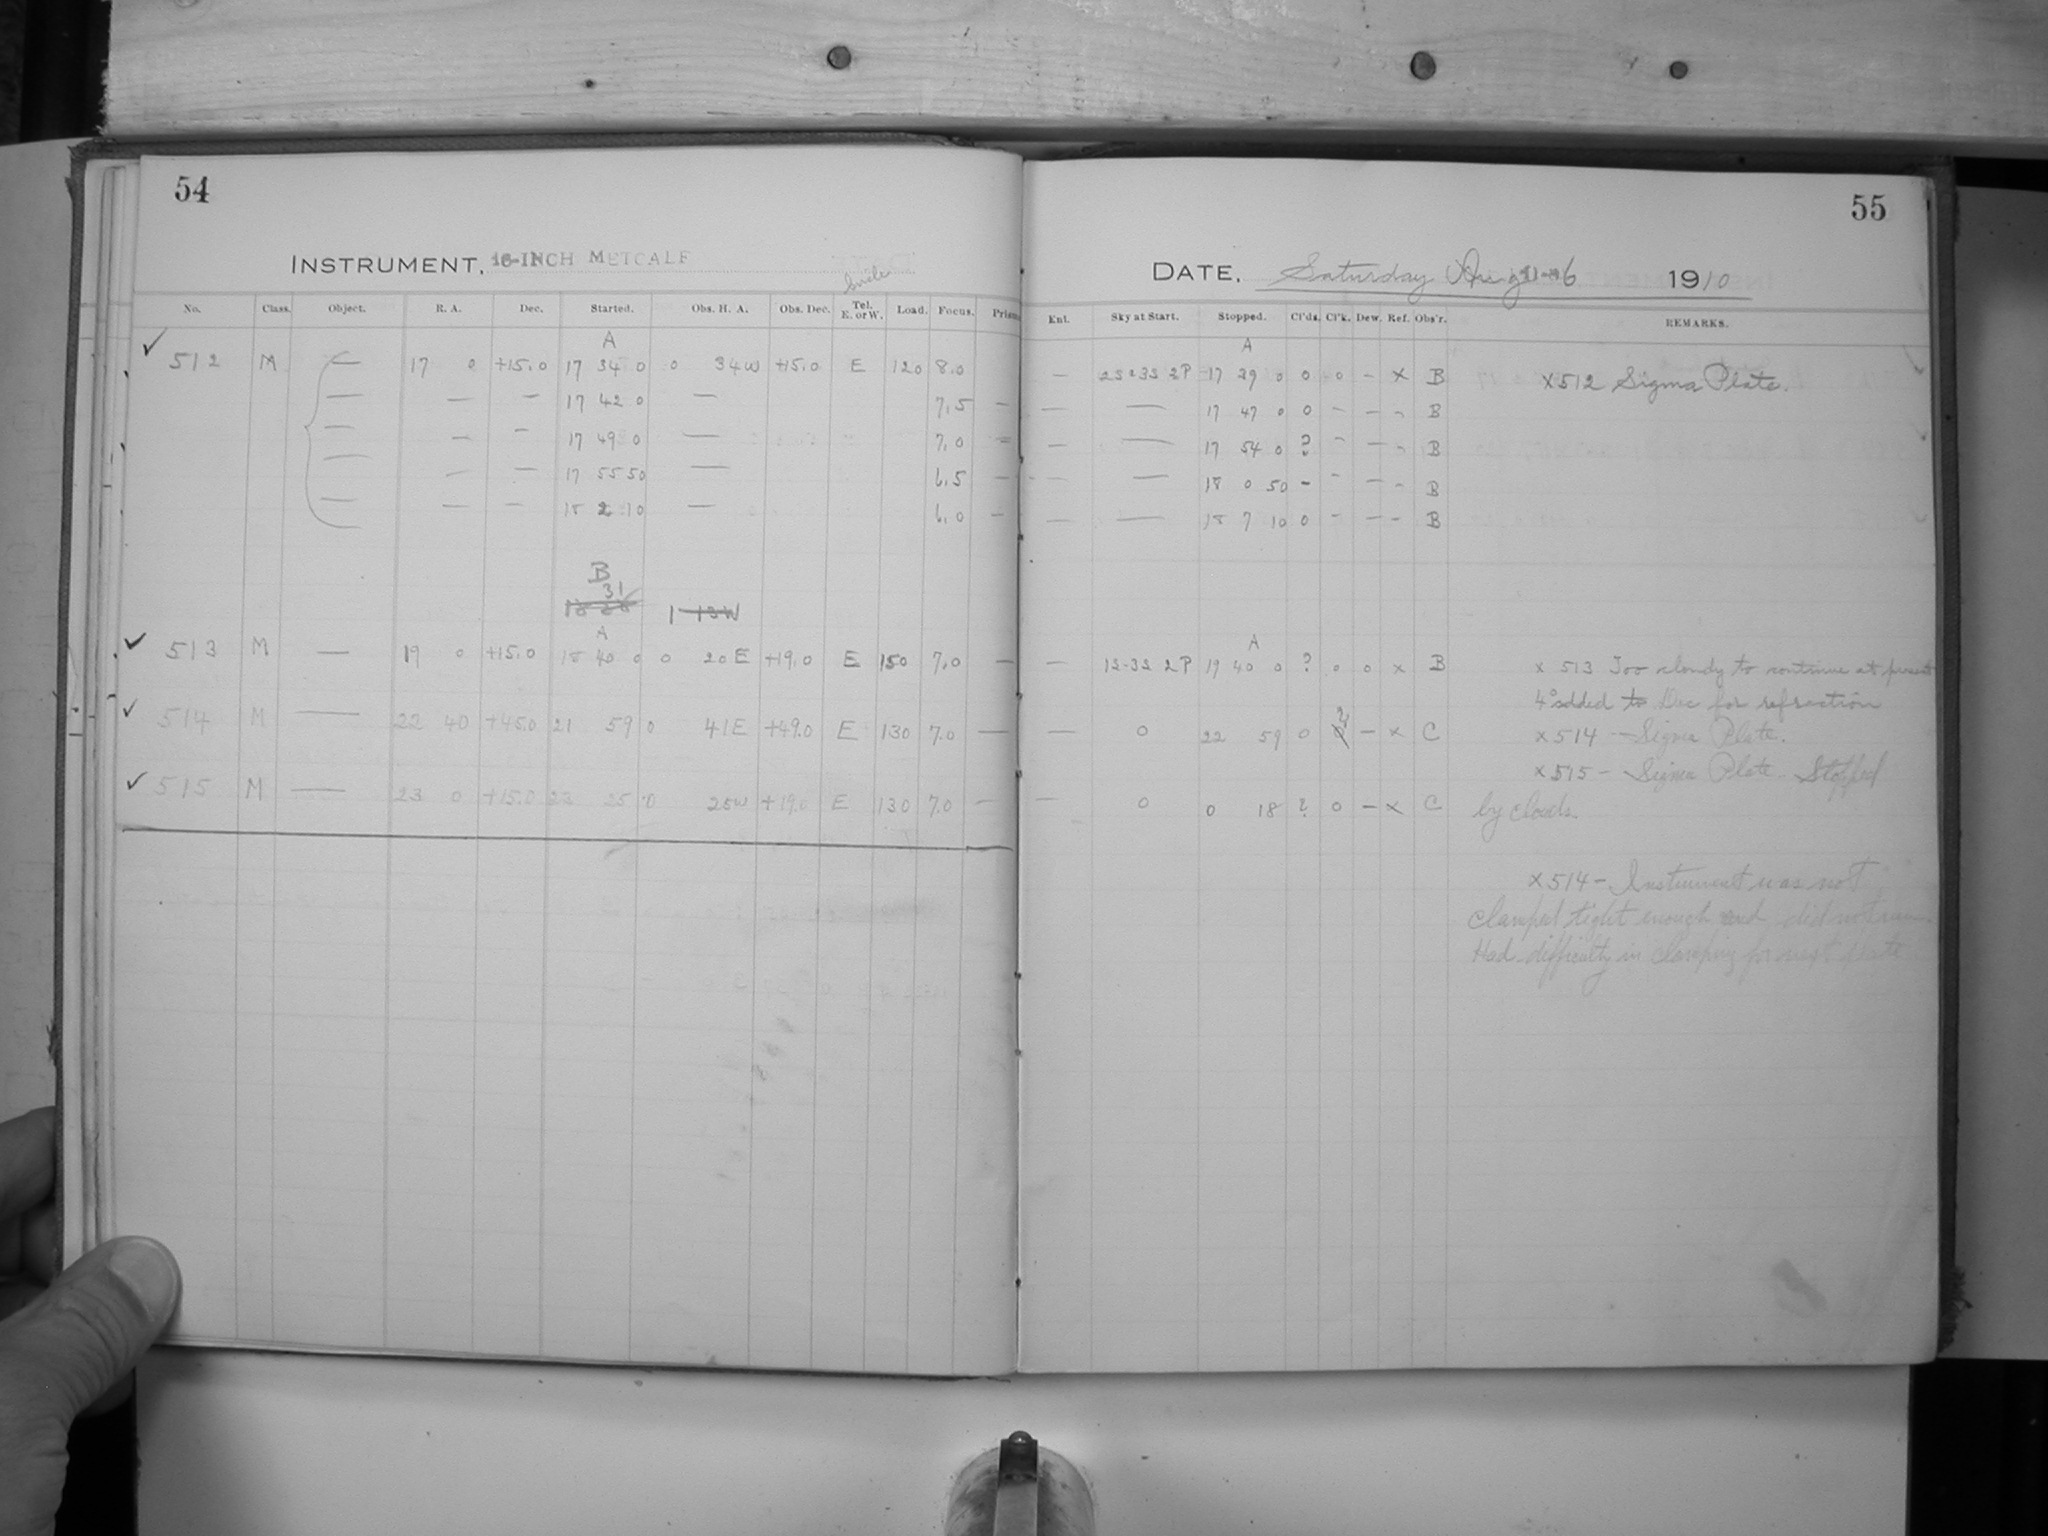 54
INSTRUMENT, 16-INCH METCALF
No. Class. Object. R. A. Dec. Started. Obs. H. A. Obs. Dec. Tel. E. or W. Load. Focus. Prism
A
512 M — 17 0 +15.0 17 34 0 0 34W +15.0 E 120 8.0
— — — 17 42 0 — 7.5 —
— — — 17 49 0 — 7.0 —
— — — 17 55 50 — 6.5 —
— — — 18 2 10 — 6.0 —
B
31
A
513 M — 19 0 +15.0 18 40 0 0 20 E +19.0 E 150 7.0 —
514 M — 22 40 +45.0 21 59 0 41E +49.0 E 130 7.0 —
515 M — 23 0 +15.0 23 25 0 25W +19.0 E 130 7.0 —
55
DATE, Saturday Aug 6 1910
Ent. Sky at Start. Stopped. Cl'ds. Cl'k. Dew. Ref. Obs'r. REMARKS.
A
— 2S-3S 2P 17 39 0 0 0 – x B x512 Sigma Plate.
— — 17 47 0 0 – – – B
— — 17 54 0 ? – – – B
— — 18 0 50 – – – – B
— — 18 7 10 0 – – – B
A
— 1S-3S 2P 19 40 0 ? 0 0 x B x 513 Too cloudy to continue at present
4° added to Dec for refraction
— 0 22 59 0 – x C x514 — Sigma Plate.
x515 – Sigma Plate. Stopped
— 0 0 18 ? 0 – x C by clouds.
x514 – Instrument was not
clamped tight enough and did not run.
Had difficulty in clamping for next plate